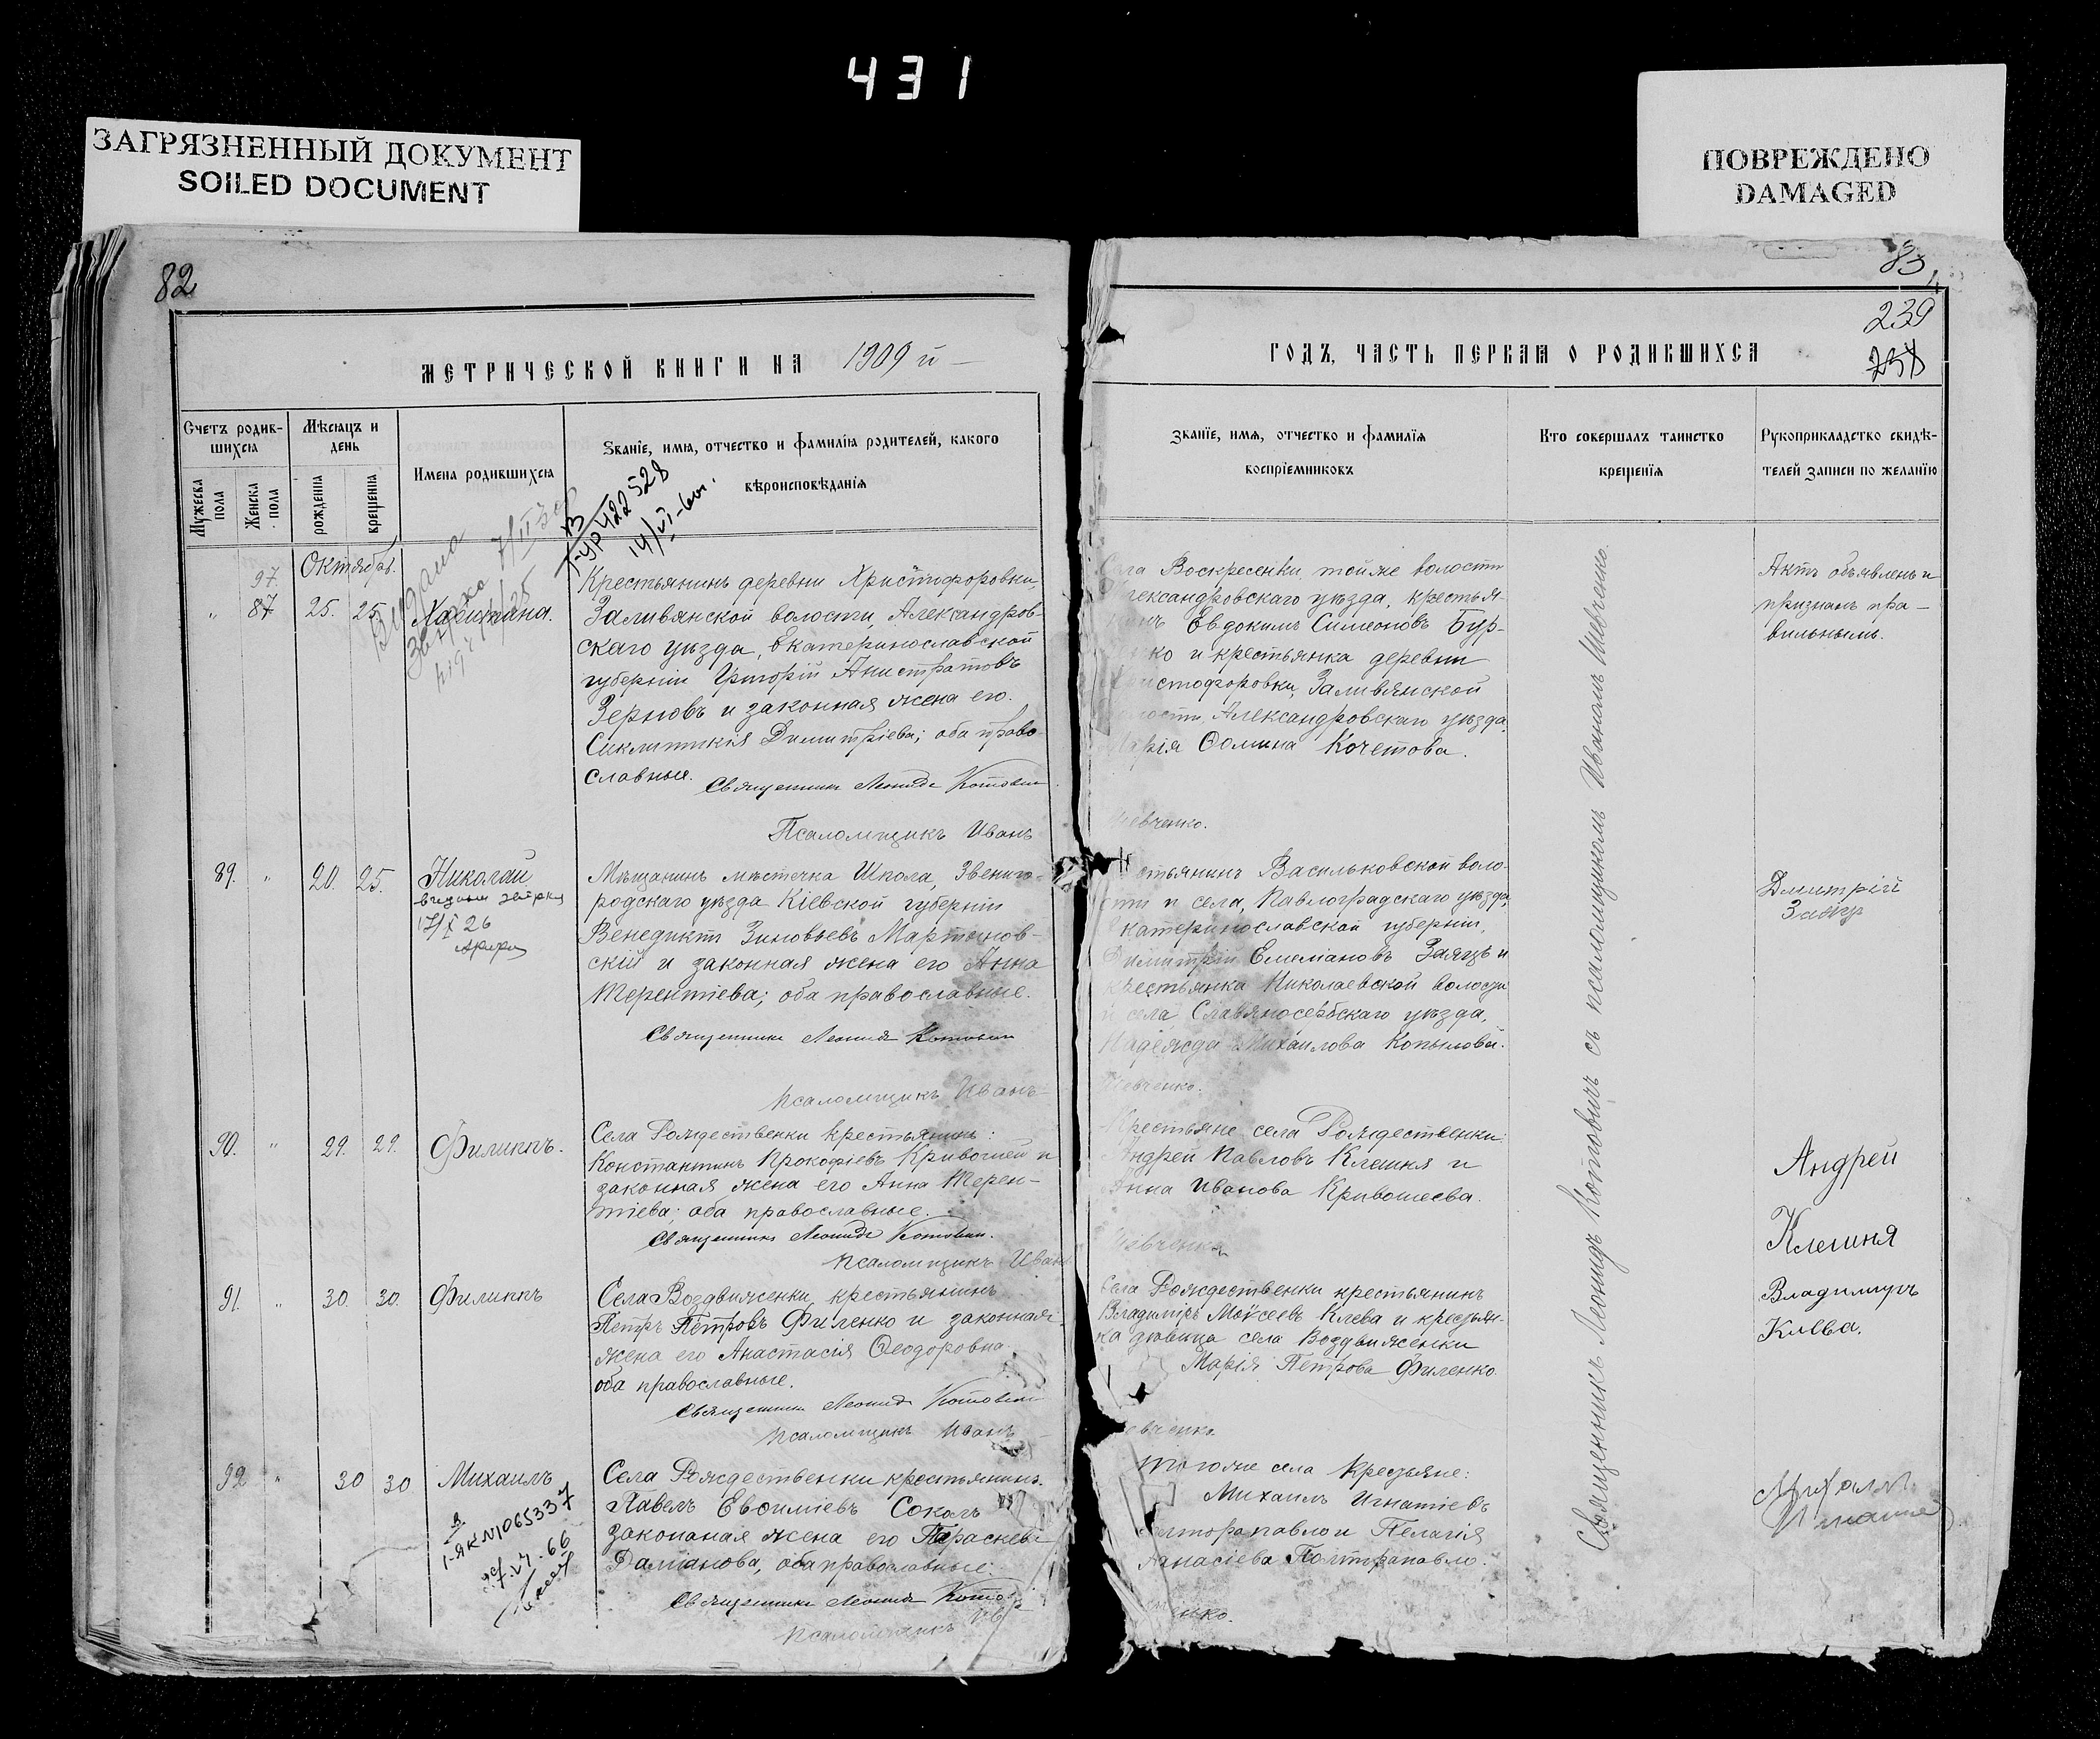 431
ЗАГРЯЗНЕННЫЙ ДОКУМЕНТ
SOILED DOCUMENT
ПОВРЕЖДЕНО
DAMAGED
82
МЕТРИЧЕСКОЙ КНИГИ НА 1909 й
Счетъ родив-
шихся
Мѣсяцъ и
день
Имена родившихся
Званіе, имя, отчество и фамилія родителей, какого
вѣроисповѣданія
Мужеска
пола
Женска
пола
рожденіа
крещеніа
422528
14/VI
Октябрь.
97.
87 25. 25. Харитина.
Крестьянинъ деревни Христофоровки,
Заливянской волости, Александров-
скаго уѣзда, Екатеринославской
губерніи Григорій Анистратовъ
Зерновъ и законная жена его
Синклитикія Димитріева; оба право-
славные.
Священникъ Леонидъ Котовичъ
Псаломщикъ Иванъ
89. " 20. 25. Николай
17/X 26
Мѣщанинъ мѣстечка Шпола, Звениго-
родскаго уѣзда Кіевской губерніи
Венедиктъ Зиновьевъ Мартынов-
скій и законная жена его Анна
Терентіева; оба православные.
Священникъ Леонидъ Котовичъ
Псаломщикъ Иванъ
90. " 29. 29. Филиппъ.
Села Рождественки крестьянинъ:
Константинъ Прокофіевъ Кривошей и
законная жена его Анна Терен-
тіева; оба православные.
Священникъ Леонидъ Котовичъ.
Псаломщикъ Иванъ
91. " 30. 30. Филиппъ
Села Воздвиженки крестьянинъ
Петръ Петровъ Филенко и законная
жена его Анастасія Ѳеодоровна
оба православные.
Священникъ Леонидъ Котовичъ
Псаломщикъ Иванъ
92 " 30 30 Михаилъ
1-ЯК N1065337
66
Села Рождественки крестьянинъ
Павелъ Евѳиміевъ Соколъ
законаная жена его Параскева
Даміанова, оба православные.
Священникъ Леонидъ
Псаломщикъ
83
239
ГОДЪ, ЧАСТЬ ПЕРВАЯ О РОДИВШИХСЯ
Званїе, имя, отчество и фамилїя
воспрїемниковъ
Кто совершалъ таинство
крещенїя
Рукоприкладство свидѣ-
телей записи по желанїю
Села Воскресенки, тойже волости
Александровскаго уѣзда, крестья-
Евдокимъ Симеоновъ Бур-
ко и крестьянка деревни
Христофоровки, Заливянской
волости, Александровскаго уѣзда,
Марія Ѳомина Кочетова.
Шевченко.
Актъ объявленъ и
признанъ пра-
вильнымъ.
Крестьянинъ Васильковской воло-
сти и села, Павлоградскаго уѣзда,
Екатеринославской губерніи,
Димитрій Емеліановъ Заяцъ и
крестьянка Николаевской волости
и села Славяносербскаго уѣзда,
Надежда Михаилова Копылова.
Шевченко.
Дмитрій
Крестьяне села Рождественки:
Андрей Павловъ Клешня и
Анна Иванова Кривошеева.
Шевченко
Андрей
Клешня
Села Рождественки крестьянинъ
Владиміръ Моѵсеевъ Клева и крестьян-
ка дѣвица села Воздвиженки
Марія Петрова Филенко.
Шевченко.
Владимиръ
Клева.
Того же села крестьяне:
Михаилъ Игнатіевъ
Полторапавло и Пелагія
Аѳанасіева Полторапавло.
енко.
Михаилъ
Священникъ Леонидъ Котовичъ съ псаломщикомъ Иваномъ Шевченко.